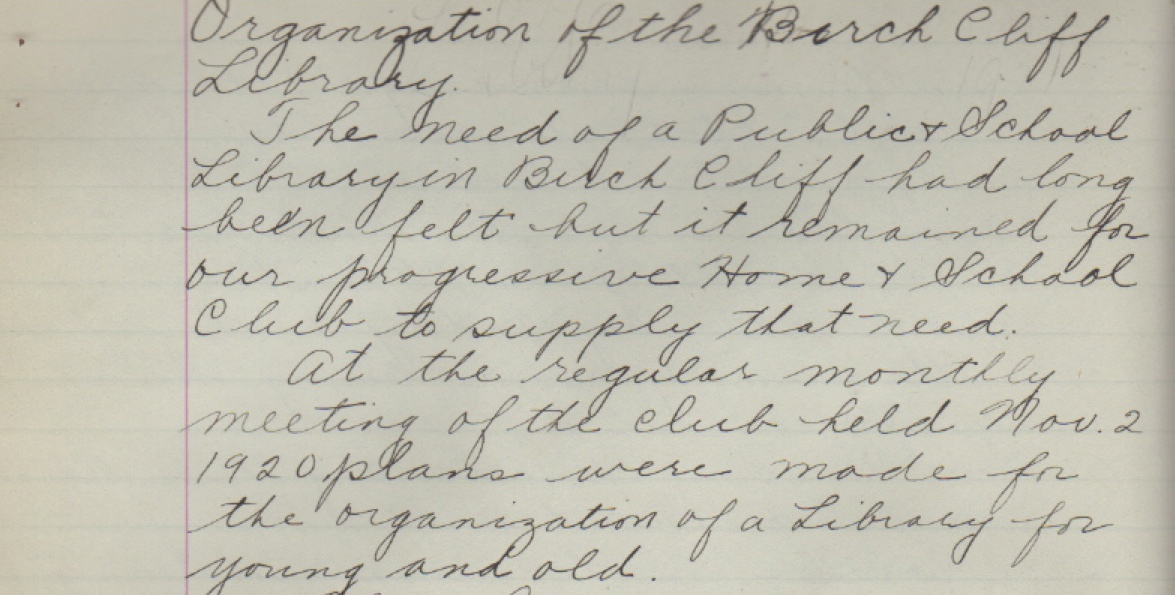 Organization of the Birch Cliff
Library.
The need of a Public & School
Library in Birch Cliff had long
been felt but it remained for
our progressive Home & School
Club to supply that need.
At the regular monthly
meeting of the club held Nov. 2
1920 plans were made for
the organization of a Library for
young and old.